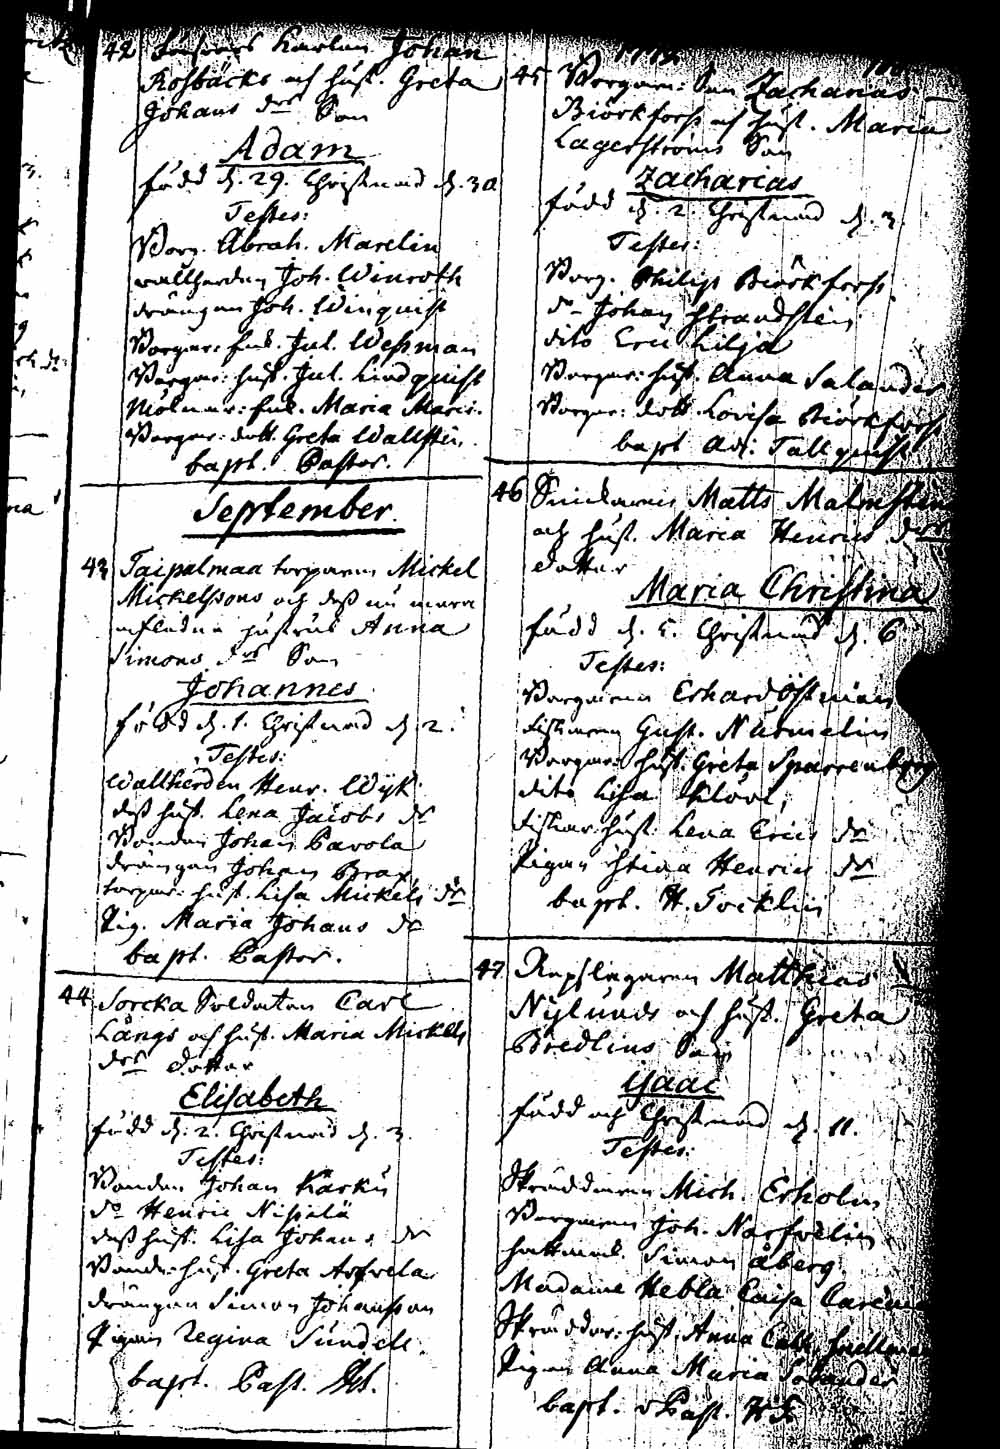 42 Johan
Kosbäcks och hust. Greta
Johans dr Son
Adam
född d. 29. Christnad d. 30
Testes:
Borg. Abrah. Marelin
vallherden Joh. Winroth
drängen Joh. Winquist
Borgar: Jul. Wessman
Borgar: hust. Jul. Lindquist
Maria
Borgar: dott. Greta Wallstén.
bapt. Pastor.
September.
43 Taipalmaa torparen Mickel
Mickelssons och dess nu mera
hustrus Anna
Simons dr Son
Johannes
född d. 1. Christnad d. 2.
Testes:
Wallherden Henr. Wijk.
dess hust. Lena Jacobs dr
Bonden Johan Pavola
drängen Johan Brax
torpar: hust. Lisa Mickels dr
Pig. Maria Johans dr
bapt. Pastor.
44 Sorcka Soldaten Carl
Långs och hust. Maria Mickels
dr dotter
Elisabeth
född d. 2. Christnad d. 3.
Testes:
Bonden Johan Kärki
do Henric Nissilä
dess hust. Lisa Johans dr
Bonde hust. Greta Arfvela
drängen Simon Johansson
Pigan Regina Sundell.
bapt. Past.
45 Borgare: Son Zacharias
Biörkforss och hust. Maria
Lagerströms Son
Zacharias
född d. 2. Christnad d. 3.
Testes:
Borg. Philip Biörkforss
do Johan Strandstein
dito Eric Lilja
Borgar: hust. Anna Salander
Borgar: dott. Lovisa Biörkforss
bapt Adj. Tallquist
46 Matts Malmsten
och hust. Maria Henrics drs
dotter
Maria Christina
född d. 5. Christnad d. 6
Testes:
Borgaren Erhard Östman
fiskaren Gust. Nurmelin
Borgar: hust. Greta Sparrenberg
dito Lisa Klöve,
fiskar hust Lena Erics dr
Pigan Stina Henrics dr
bapt. H. Tocklin
47 Repslagaren Matthias
Nylunds och hust. Greta
Bredlius Son
Isaac
född och Christnad d. 11.
Testes:
Skräddaren Mich. Erholm
Borgaren Joh. Norfvelin
Simon Åberg.
Madame Hebla Caisa
Skräddar: hust. Anna Cath. Snellman
Pigan Anna Maria Solander
bapt.